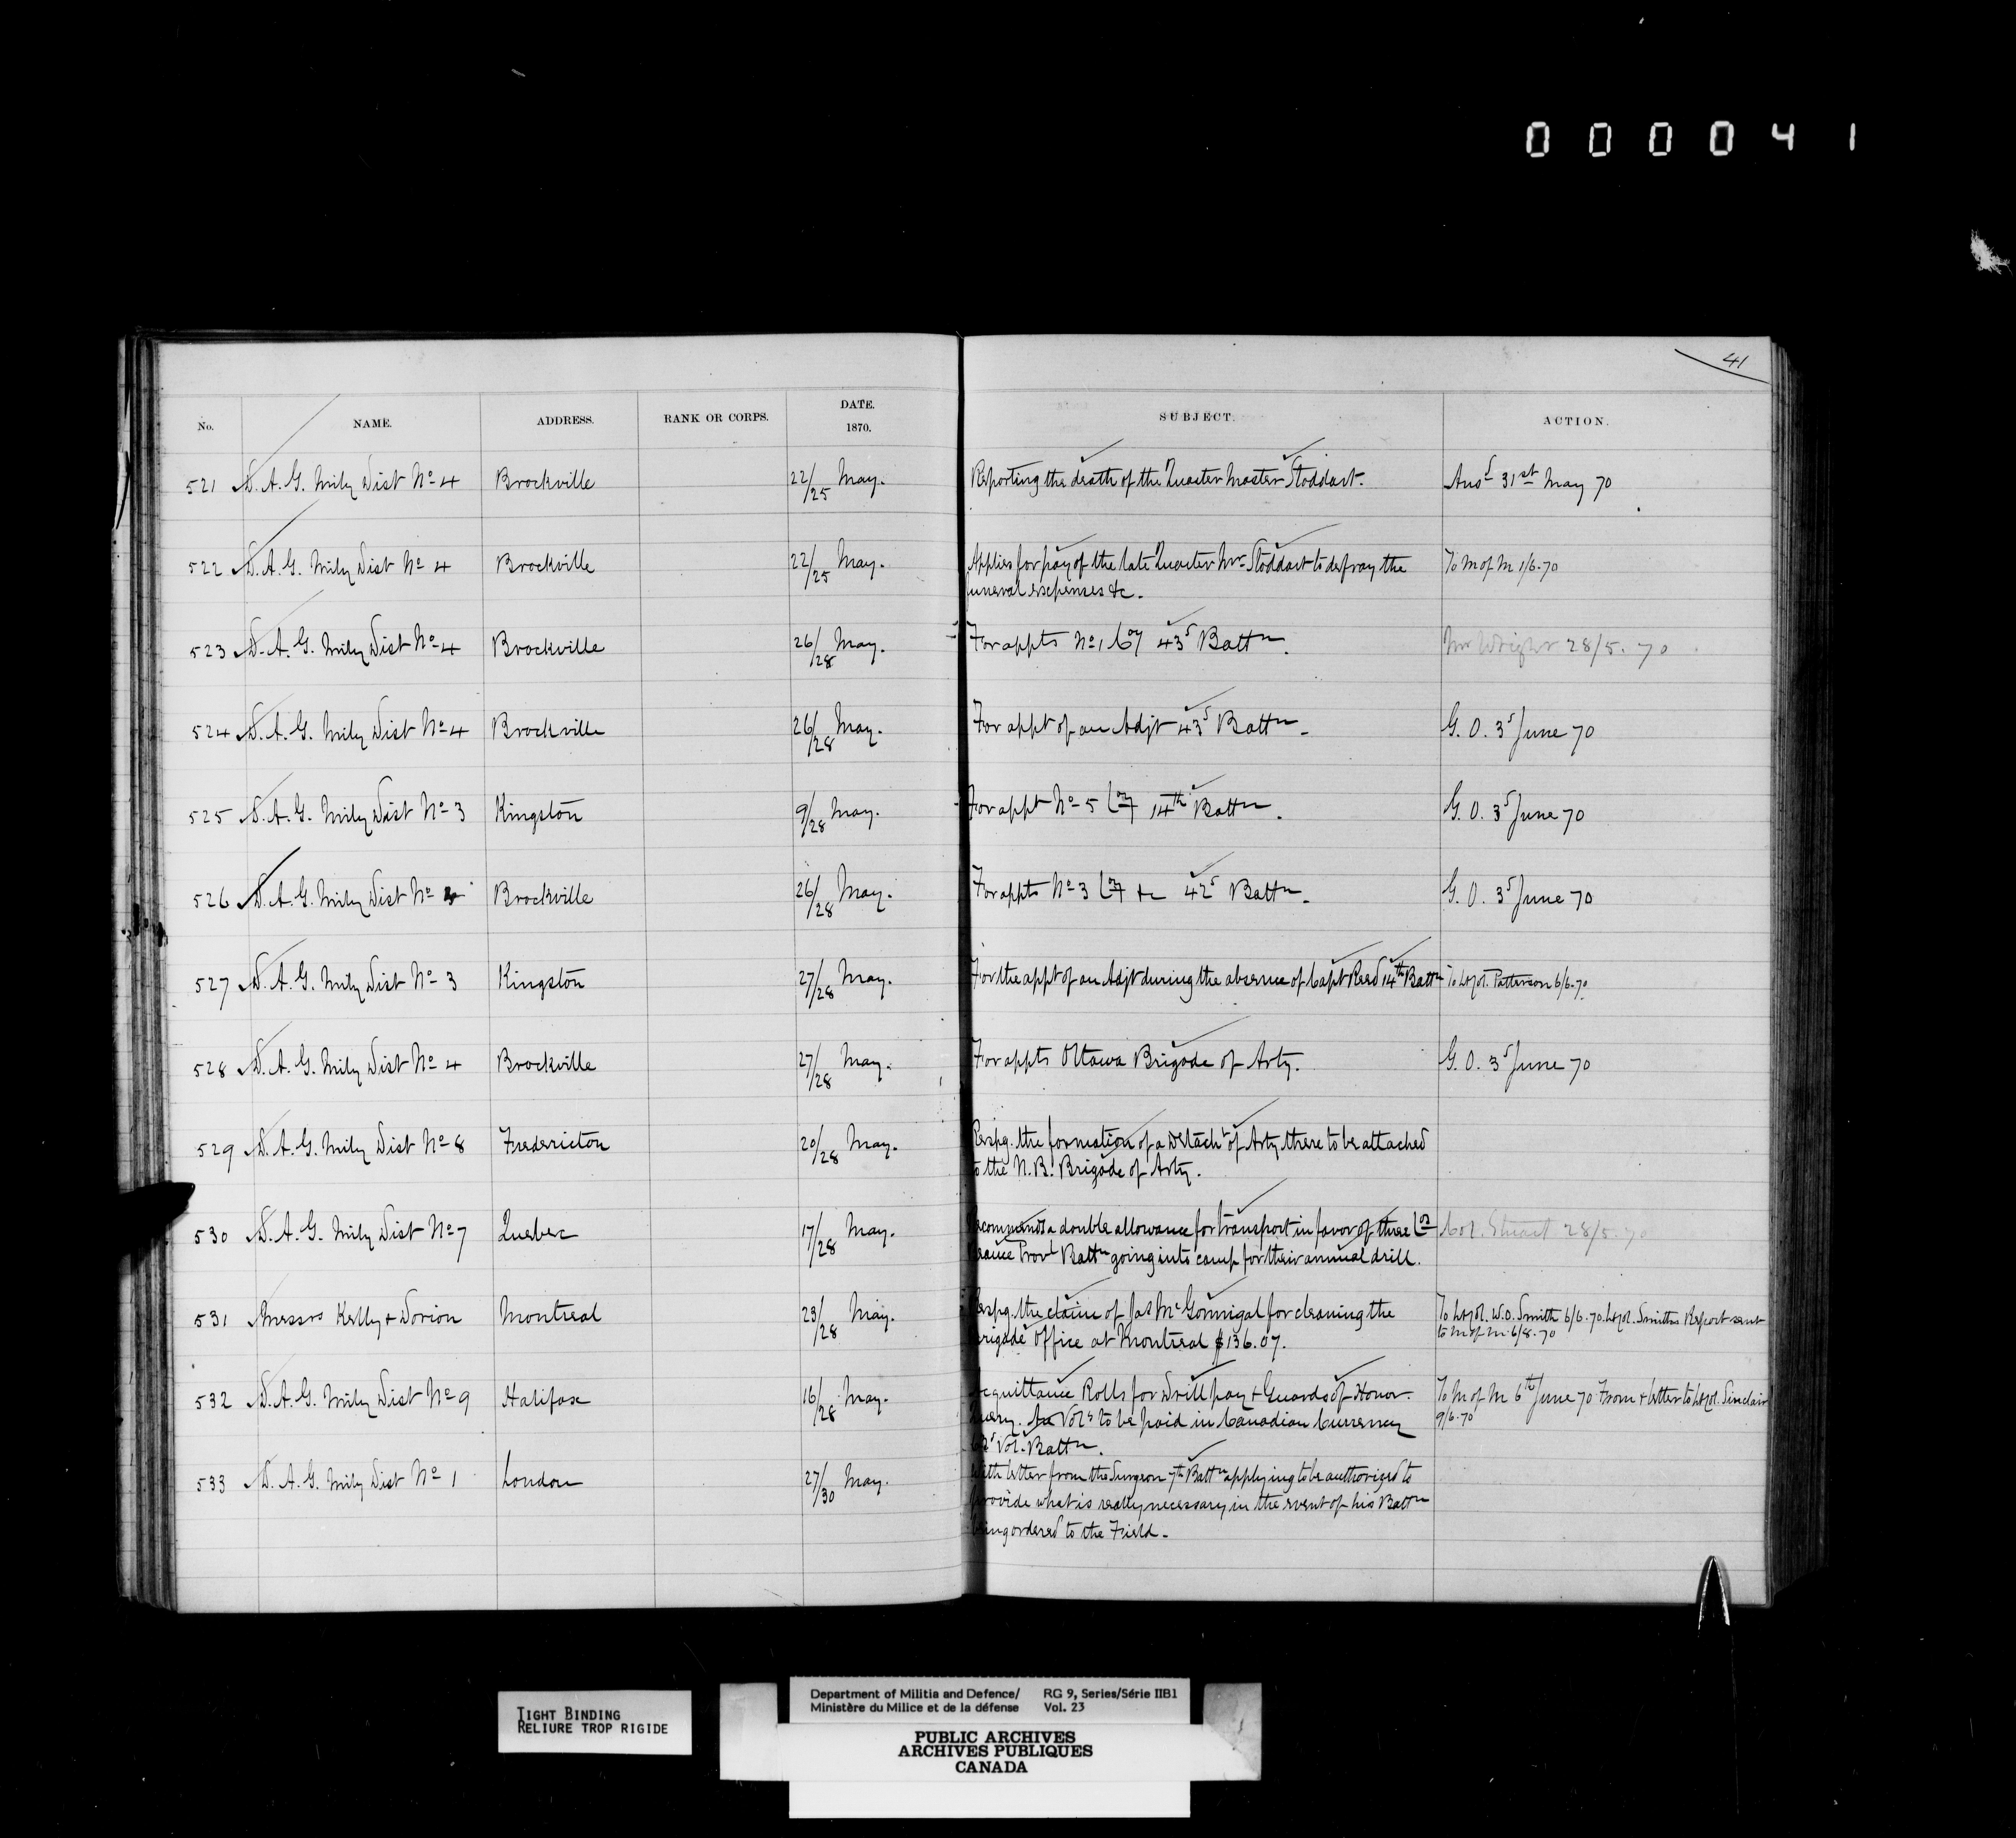 000041
41
No. NAME. ADDRESS. RANK OR CORPS. DATE. 1870. SUBJECT. ACTION.
521 D. A. G. Mily Dist No 4 Brockville 22/25 May. Reporting the death of the Quarter Master Stoddart. Ansd 31st May 70
522 D. A. G. Mily Dist No 4 Brockville 22/25 May. Applies for pay of the late Quarter Mr Stoddart to defray the To M of M 1/6.70
funeral expenses &c.
523 D. A. G. Mily Dist No 4 Brockville 26/28 May. For appts No 1 Coy 43d Battn. Mr Wright 28/5.70
524 D. A. G. Mily Dist No 4 Brockville 26/28 May. For appt of an Adjt 43d Battn. G. O. 3d June 70
525 D. A. G. Mily Dist No 3 Kingston 9/28 May. For appt No 5 Coy 14th Battn. G. O. 3d June 70
526 D. A. G. Mily Dist No 4 Brockville 26/28 May. For appts No 3 Coy &c 42d Battn. G. O. 3d June 70
527 D. A. G. Mily Dist No 3 Kingston 27/28 May. For the appt of an Adjt during the absence of Capt Reed 14th Battn To Lt Col. Patterson 6/6.70
528 D. A. G. Mily Dist No 4 Brockville 27/28 May. For appts Ottawa Brigade of Arty. G. O. 3d June 70
529 D. A. G. Mily Dist No 8 Fredericton 20/28 May. Respg. the formation of a Detacht of Arty there to be attached
to the N. B. Brigade of Arty.
530 D. A. G. Mily Dist No 7 Quebec 17/28 May. Recommends a double allowance for transport in favor of three Cos Col. Stuart 28/5.70
Beauce Provl Battn going into camp for their annual drill.
531 Messrs Kelly & Dorion Montreal 23/28 May. Respg. the claim of Jas McGonnigal for cleaning the To Lt Col. W. O. Smith 6/6.70. Lt Col. Smiths Report sent
Brigade Office at Montreal $136.07. to M of M 6/8.70
532 D. A. G. Mily Dist No 9 Halifax 16/28 May. Acquittance Rolls for Drill pay & Guards of Honor. To M of M 6th June 70 From & letter to Lt Col. Sinclair
Query. Are Vols to be paid in Canadian Currency 9/6.70
Vol. Battn.
533 D. A. G. Mily Dist No 1 London 27/30 May. With letter from the Surgeon 7th Battn applying to be authorized to
provide what is really necessary in the event of his Battn
being ordered to the Field.
TIGHT BINDING
RELIURE TROP RIGIDE
Department of Militia and Defence/ RG 9, Series/Série IIB1
Ministère du Milice et de la défense Vol. 23
PUBLIC ARCHIVES
ARCHIVES PUBLIQUES
CANADA